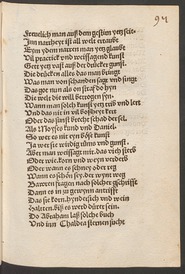 Freuelich man auß dem gestirn yetz seit
Inn narrheyt ist all welt ertaubt
Eym yden narren man yetz glaubt
Vil practick vnd weissagend kunst
Gett yetz vast auß der drucker gunst
Die drucken alles das man bringt
Was man von schanden sagt vnd singt
Das got nun als on straf do hyn
Die welt die will betrogen syn
Wann man solch kunst yetz treib vnd lert
Vnd das nit in vil boßheyt kert
Oder das sunst brecht schad der sel
Als Moyses kund vnd Daniel
So wer es nit eyn böse kunst
Ja wer sie würdig rům vnd gunst
Aber man weissagt nit das vich sterb
Oder wie korn vnd wyn verderb
Oder wann es schney oder reg
Wann es schön sey der wynt weg
Narren fragen noch solcher gschrifft
Dann es in zu gewynn antrifft
Das sie korn hyndersich vnd wein
Halten biß es werd dürer sein
Do Abraham laß solche buch
Vnd inn Chaldea sternen sucht